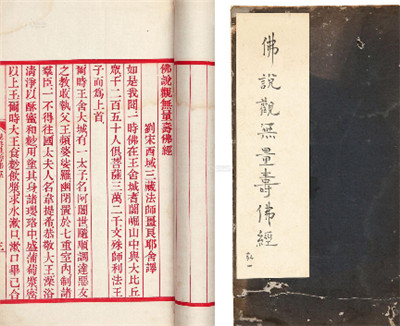 佛說觀無量壽佛經
弘一
佛說觀無量壽佛經
劉宋西域三藏法師畺良耶舍譯
如是我聞一時佛在王舍城耆闍崛山中與大比丘
眾千二百五十人俱菩薩三萬二千文殊師利法王
子而為上首
爾時王舍大城有一太子名阿闍世隨順調達惡友
之教收執父王頻婆娑羅幽閉置於七重室內制諸
羣臣一不得往國大夫人名韋提希恭敬大王澡浴
清淨以酥蜜和麨用塗其身諸瓔珞中盛蒲萄漿密
以上王爾時大王食麨飲漿求水漱口漱口畢已合